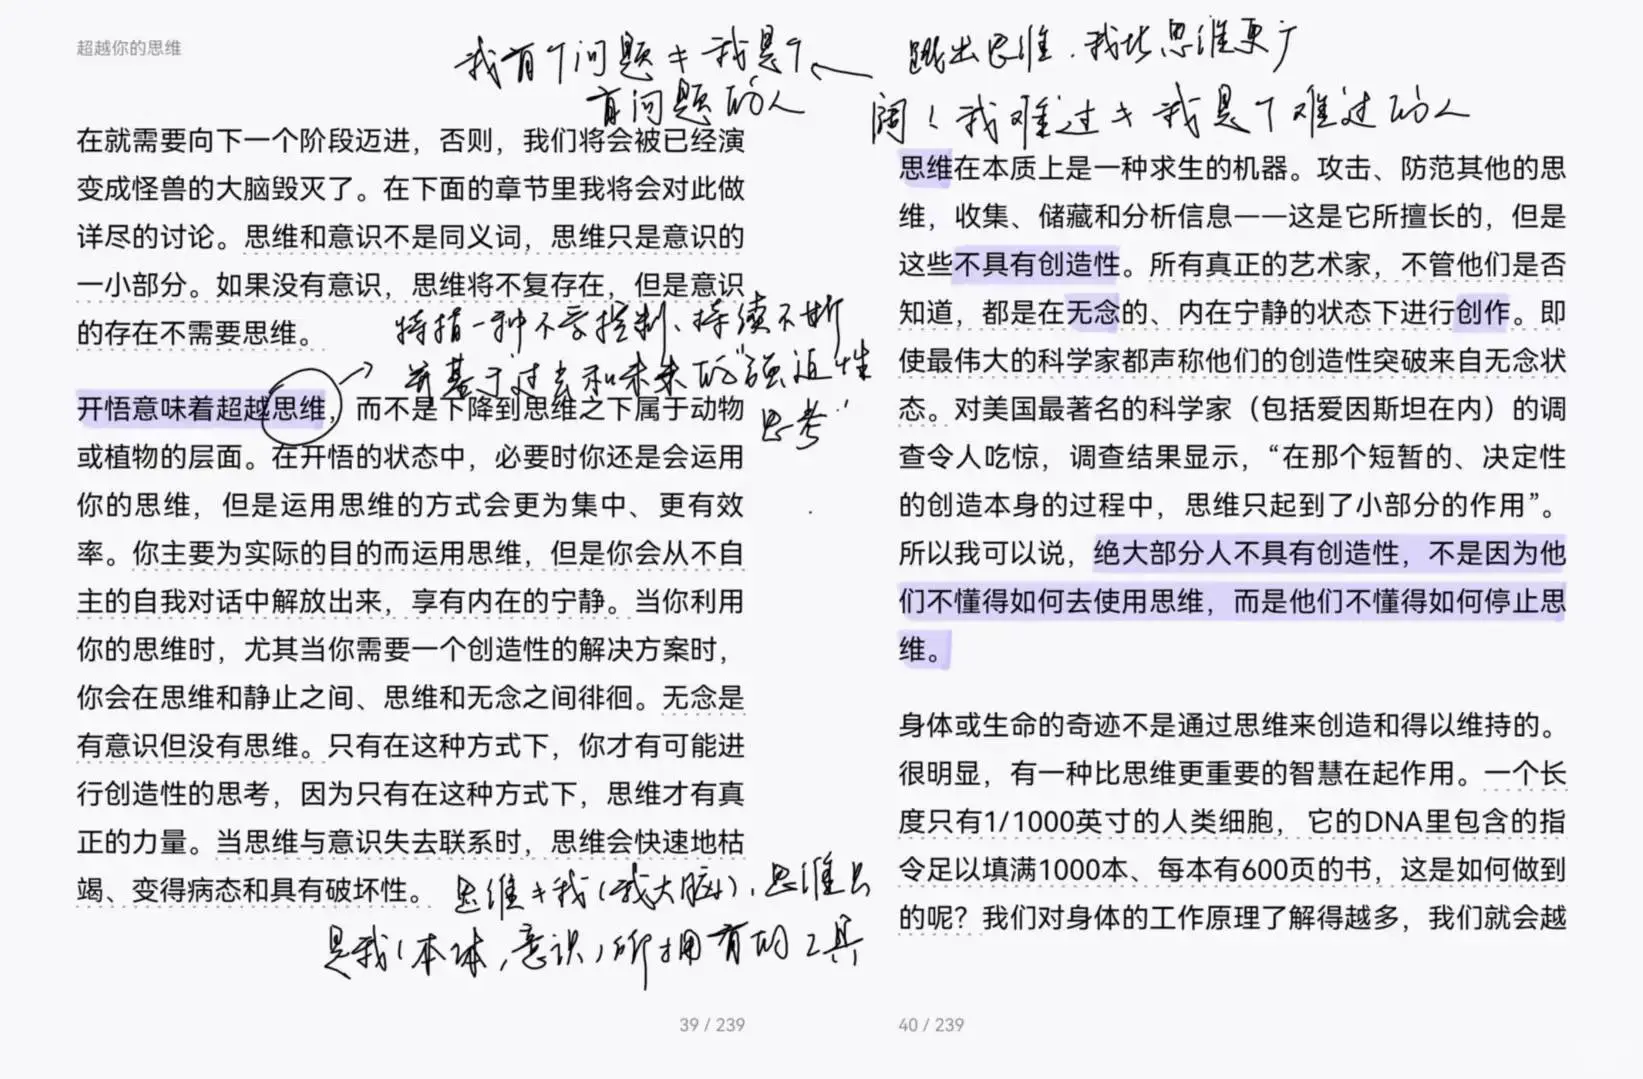 超越你的思维
我有个问题≠我是个
有问题的人
在就需要向下一个阶段迈进，否则，我们将会被已经演
变成怪兽的大脑毁灭了。在下面的章节里我将会对此做
详尽的讨论。思维和意识不是同义词，思维只是意识的
一小部分。如果没有意识，思维将不复存在，但是意识
的存在不需要思维。
特指一种不受控制、持续不断
并基于过去和未来的“强迫性
思考”
开悟意味着超越思维，而不是下降到思维之下属于动物
或植物的层面。在开悟的状态中，必要时你还是会运用
你的思维，但是运用思维的方式会更为集中、更有效
率。你主要为实际的目的而运用思维，但是你会从不自
主的自我对话中解放出来，享有内在的宁静。当你利用
你的思维时，尤其当你需要一个创造性的解决方案时，
你会在思维和静止之间、思维和无念之间徘徊。无念是
有意识但没有思维。只有在这种方式下，你才有可能进
行创造性的思考，因为只有在这种方式下，思维才有真
正的力量。当思维与意识失去联系时，思维会快速地枯
竭、变得病态和具有破坏性。
思维≠我（我大脑），思维只
是我（本体，意识）所拥有的工具
39 / 239
跳出思维，我比思维更广
阔！我难过≠我是个难过的人
思维在本质上是一种求生的机器。攻击、防范其他的思
维，收集、储藏和分析信息——这是它所擅长的，但是
这些不具有创造性。所有真正的艺术家，不管他们是否
知道，都是在无念的、内在宁静的状态下进行创作。即
使最伟大的科学家都声称他们的创造性突破来自无念状
态。对美国最著名的科学家（包括爱因斯坦在内）的调
查令人吃惊，调查结果显示，“在那个短暂的、决定性
的创造本身的过程中，思维只起到了小部分的作用”。
所以我可以说，绝大部分人不具有创造性，不是因为他
们不懂得如何去使用思维，而是他们不懂得如何停止思
维。
身体或生命的奇迹不是通过思维来创造和得以维持的。
很明显，有一种比思维更重要的智慧在起作用。一个长
度只有1/1000英寸的人类细胞，它的DNA里包含的指
令足以填满1000本、每本有600页的书，这是如何做到
的呢？我们对身体的工作原理了解得越多，我们就会越
40 / 239